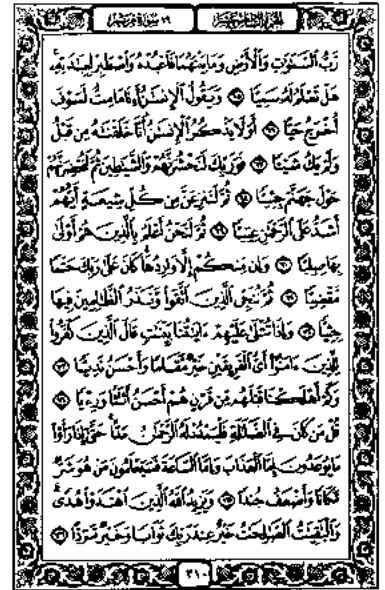 الجزء السادس عشر ١٩ سورة مريم
رَّبُّ ٱلسَّمَٰوَٰتِ وَٱلْأَرْضِ وَمَا بَيْنَهُمَا فَٱعْبُدْهُ وَٱصْطَبِرْ لِعِبَٰدَتِهِۦ
هَلْ تَعْلَمُ لَهُۥ سَمِيًّا ٦٥ وَيَقُولُ ٱلْإِنسَٰنُ أَءِذَا مَا مِتُّ لَسَوْفَ
أُخْرَجُ حَيًّا ٦٦ أَوَلَا يَذْكُرُ ٱلْإِنسَٰنُ أَنَّا خَلَقْنَٰهُ مِن قَبْلُ
وَلَمْ يَكُ شَيْـًٔا ٦٧ فَوَرَبِّكَ لَنَحْشُرَنَّهُمْ وَٱلشَّيَٰطِينَ ثُمَّ لَنُحْضِرَنَّهُمْ
حَوْلَ جَهَنَّمَ جِثِيًّا ٦٨ ثُمَّ لَنَنزِعَنَّ مِن كُلِّ شِيعَةٍ أَيُّهُمْ
أَشَدُّ عَلَى ٱلرَّحْمَٰنِ عِتِيًّا ٦٩ ثُمَّ لَنَحْنُ أَعْلَمُ بِٱلَّذِينَ هُمْ أَوْلَىٰ
بِهَا صِلِيًّا ٧٠ وَإِن مِّنكُمْ إِلَّا وَارِدُهَا كَانَ عَلَىٰ رَبِّكَ حَتْمًا
مَّقْضِيًّا ٧١ ثُمَّ نُنَجِّى ٱلَّذِينَ ٱتَّقَوا۟ وَّنَذَرُ ٱلظَّٰلِمِينَ فِيهَا
جِثِيًّا ٧٢ وَإِذَا تُتْلَىٰ عَلَيْهِمْ ءَايَٰتُنَا بَيِّنَٰتٍ قَالَ ٱلَّذِينَ كَفَرُوا۟
لِلَّذِينَ ءَامَنُوٓا۟ أَىُّ ٱلْفَرِيقَيْنِ خَيْرٌ مَّقَامًا وَأَحْسَنُ نَدِيًّا ٧٣
وَكَمْ أَهْلَكْنَا قَبْلَهُم مِّن قَرْنٍ هُمْ أَحْسَنُ أَثَٰثًا وَرِءْيًا ٧٤
قُلْ مَن كَانَ فِى ٱلضَّلَٰلَةِ فَلْيَمْدُدْ لَهُ ٱلرَّحْمَٰنُ مَدًّا حَتَّىٰٓ إِذَا رَأَوْا۟
مَا يُوعَدُونَ إِمَّا ٱلْعَذَابَ وَإِمَّا ٱلسَّاعَةَ فَسَيَعْلَمُونَ مَنْ هُوَ شَرٌّ
مَّكَانًا وَأَضْعَفُ جُندًا ٧٥ وَيَزِيدُ ٱللَّهُ ٱلَّذِينَ ٱهْتَدَوْا۟ هُدًى
وَٱلْبَٰقِيَٰتُ ٱلصَّٰلِحَٰتُ خَيْرٌ عِندَ رَبِّكَ ثَوَابًا وَخَيْرٌ مَّرَدًّا ٧٦
٣١٠